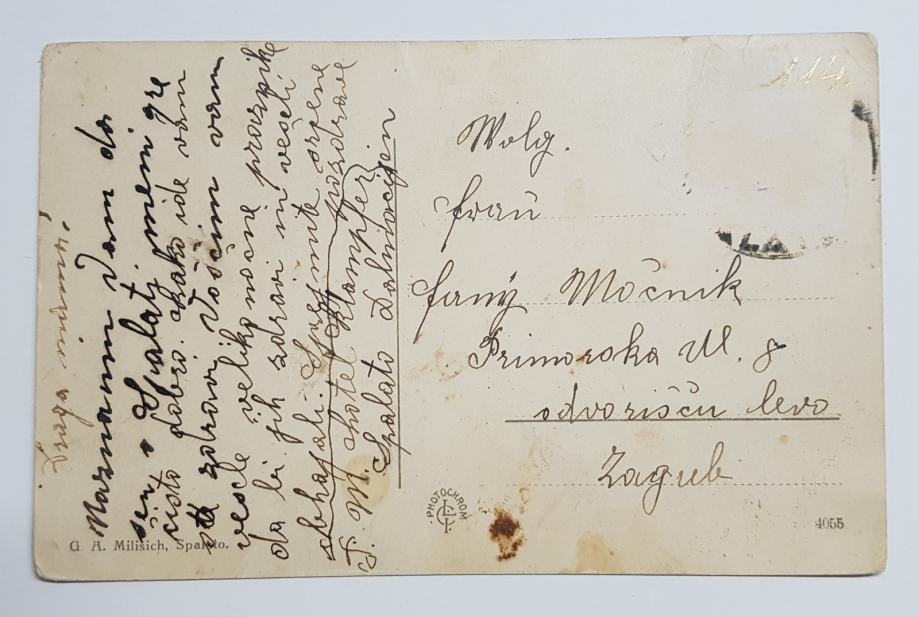 Naznanim Vam da
sem v Spalati meni gre
čisto dobro. Kako ide vam
ste zdravi Voščim vam
vesele velikonočne praznike
da bi jih zdravi in veseli
obhajali. Sprejmite srčne
pozdrave
F. M. hotel Klampfer
Spalato Dalmacijen
Wolg.
Frau
Fany Močnik
Primorska Ul. 8
odvorišču levo
Zagreb
G. A. Milisich, Spalato.
PHOTOCHROM
4055
114.